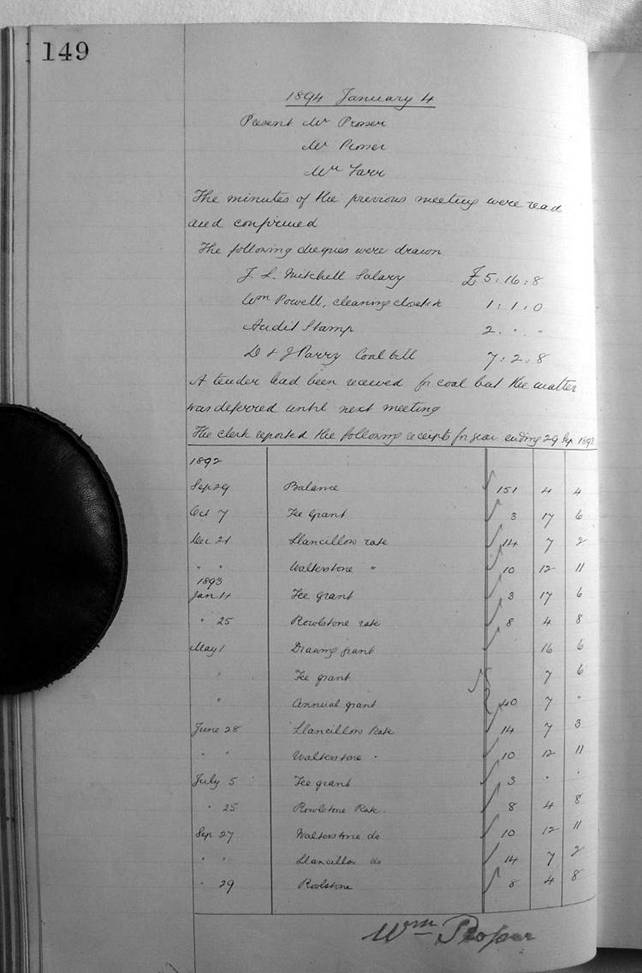 149
1894 January 4
Present Mr Prosser
Mr Pinner
Mr Farr
The minutes of the previous meeting were read
and confirmed
The following cheques were drawn
J. L. Mitchell Salary £5:16:8
Wm Powell, cleaning closets 1:1:0
Audit Stamp 2. " "
D & J Parry Coal bill 7:2:8
A tender had been received for coal but the matter
was deferred until next meeting
The clerk reported the following receipts for year ending 29 Sep 1893
1892
Sep 29 Balance 151 4 4
Oct 7 Fee Grant 3 17 6
Dec 21 Llancillow rate 14 7 2
" " Walterstone " 10 12 11
1893
Jan 11 Fee grant 3 17 6
" 25 Rowlstone rate 8 4 8
May 1 Drawing grant 16 6
" Fee grant 7 6
" Annual grant 40 7 "
June 28 Llancillow Rate 14 7 3
" " Walterstone " 10 12 11
July 5 Fee grant 3 " "
" 25 Rowlstone Rate 8 4 8
Sep 27 Walterstone do 10 12 11
" " Llancillow do 14 7 2
" 29 Rowlstone 8 4 8
Wm Prosser